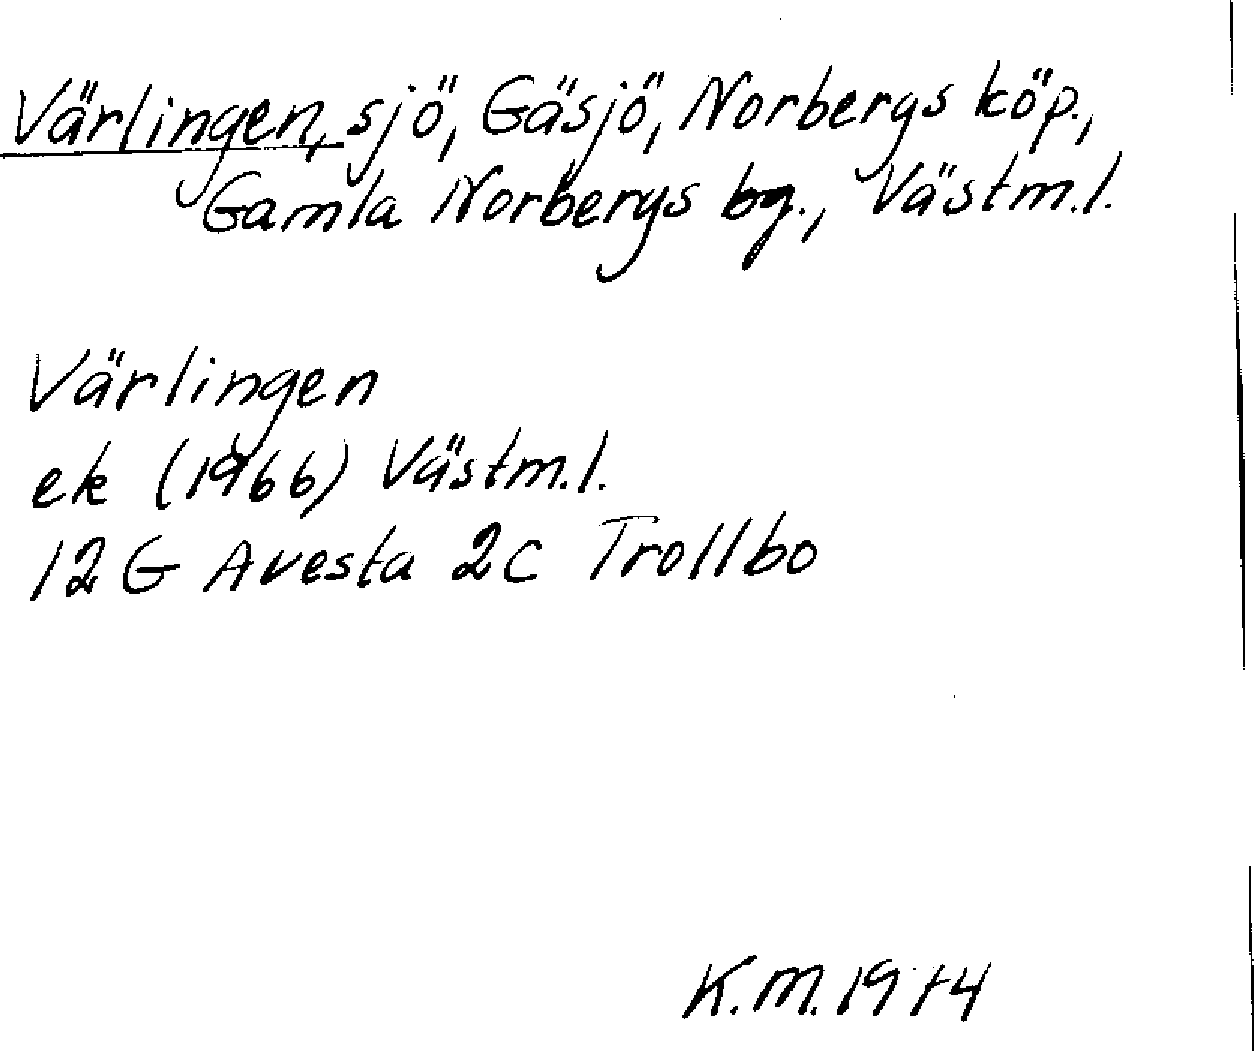 Värlingen, sjö, Gäsjö, Norbergs köp.,
Gamla Norbergs bg., Västm.l.
Värlingen
ek (1966) Västm.l.
12 G Avesta 2c Trollbo
K.M. 1974